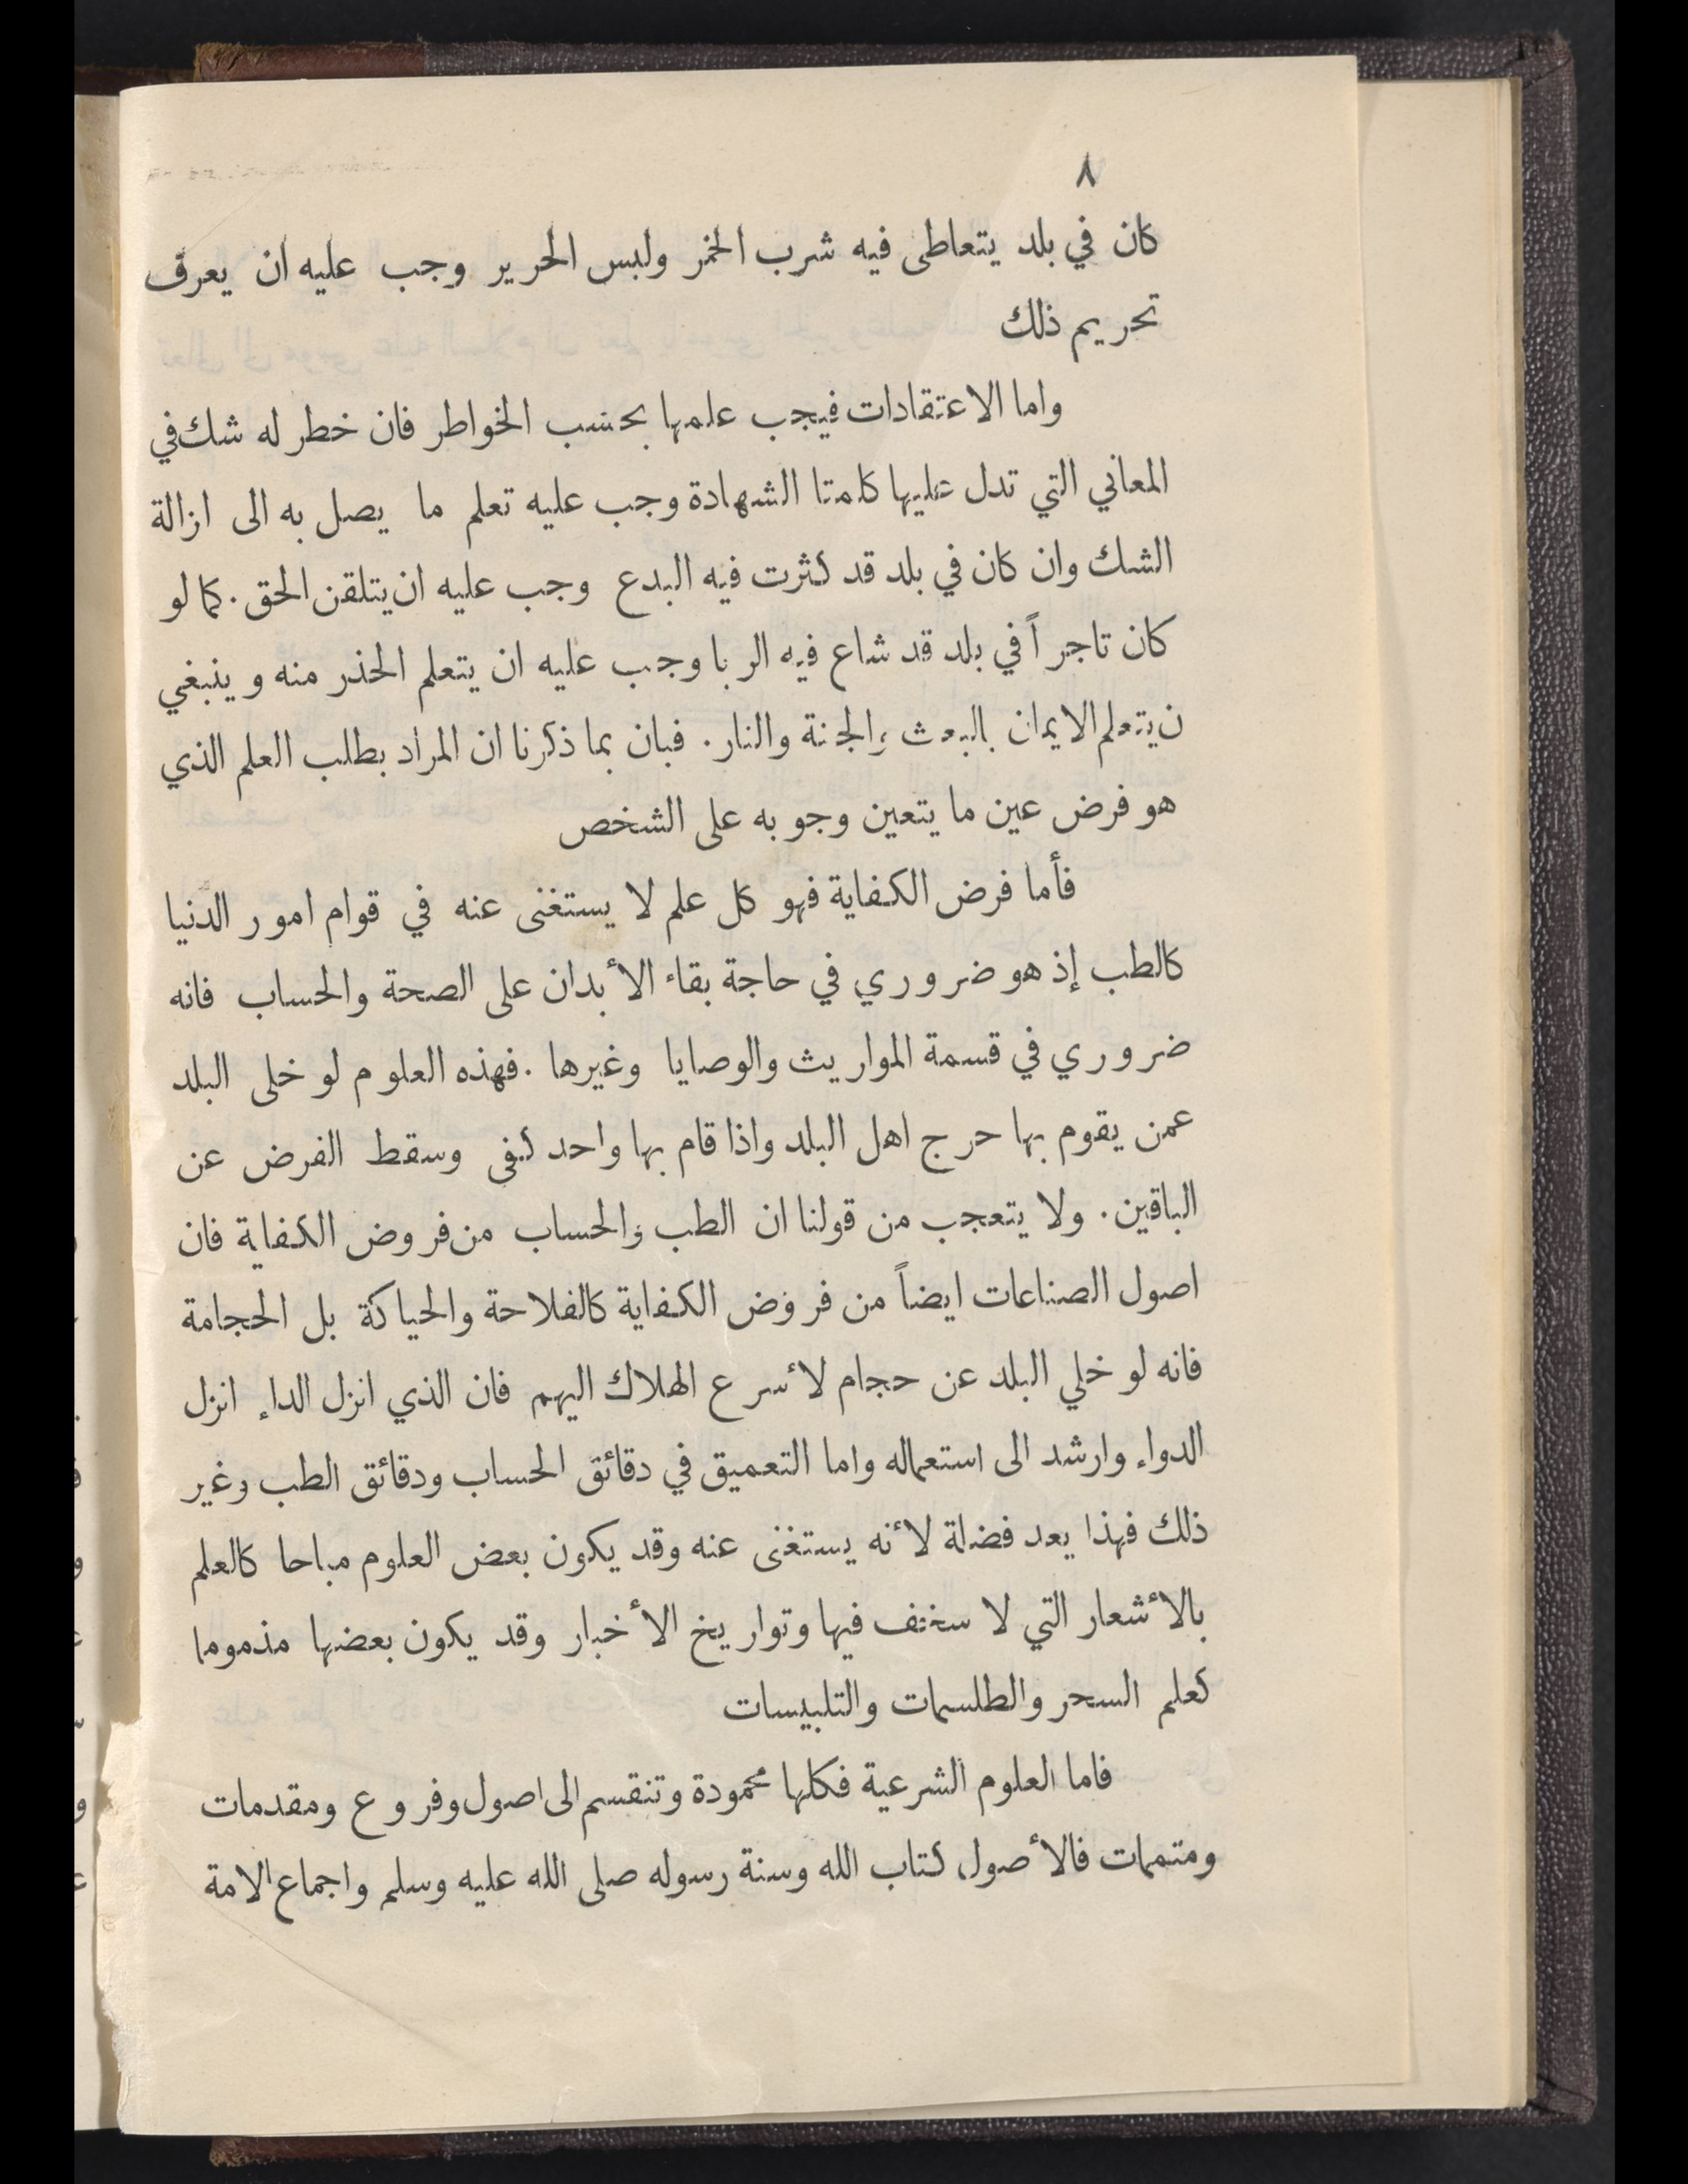 ٨
كان في بلد يتعاطى فيه شرب الخمر ولبس الحرير وجب عليه ان يعرف
تحريم ذلك
واما الاعتقادات فيجب علمها بحسب الخواطر فان خطر له شك في
المعاني التي تدل عليها كلمتا الشهادة وجب عليه تعلم ما يصل به الى ازالة
الشك وان كان في بلد قد كثرت فيه البدع وجب عليه ان يتلقن الحق. كما لو
كان تاجراً في بلد قد شاع فيه الربا وجب عليه ان يتعلم الحذر منه وينبغي
ن يتعلم الايمان بالبعث والجنة والنار. فبان بما ذكرنا ان المراد بطلب العلم الذي
هو فرض عين ما يتعين وجوبه على الشخص
فأما فرض الكفاية فهو كل علم لا يستغنى عنه في قوام امور الدنيا
كالطب إذ هو ضروري في حاجة بقاء الأبدان على الصحة والحساب فانه
ضروري في قسمة المواريث والوصايا وغيرها. فهذه العلوم لو خلى البلد
عمن يقوم بها حرج اهل البلد واذا قام بها واحد كفى وسقط الفرض عن
الباقين. ولا يتعجب من قولنا ان الطب والحساب من فروض الكفاية فان
اصول الصناعات ايضاً من فروض الكفاية كالفلاحة والحياكة بل الحجامة
فانه لو خلي البلد عن حجام لأسرع الهلاك اليهم فان الذي انزل الداء انزل
الدواء وارشد الى استعماله واما التعميق في دقائق الحساب ودقائق الطب وغير
ذلك فهذا يعد فضلة لأنه يستغنى عنه وقد يكون بعض العلوم مباحا كالعلم
بالأشعار التي لا سخف فيها وتواريخ الأخبار وقد يكون بعضها مذموما
كعلم السحر والطلسمات والتلبيسات
فاما العلوم الشرعية فكلها محمودة وتنقسم الى اصول وفروع ومقدمات
ومتممات فالأصول كتاب الله وسنة رسوله صلى الله عليه وسلم واجماع الامة